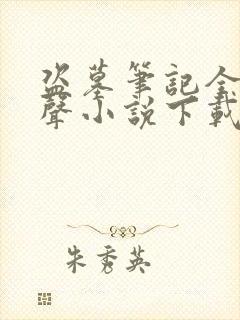 盜墓筆記全
聲小說下載
朱秀英